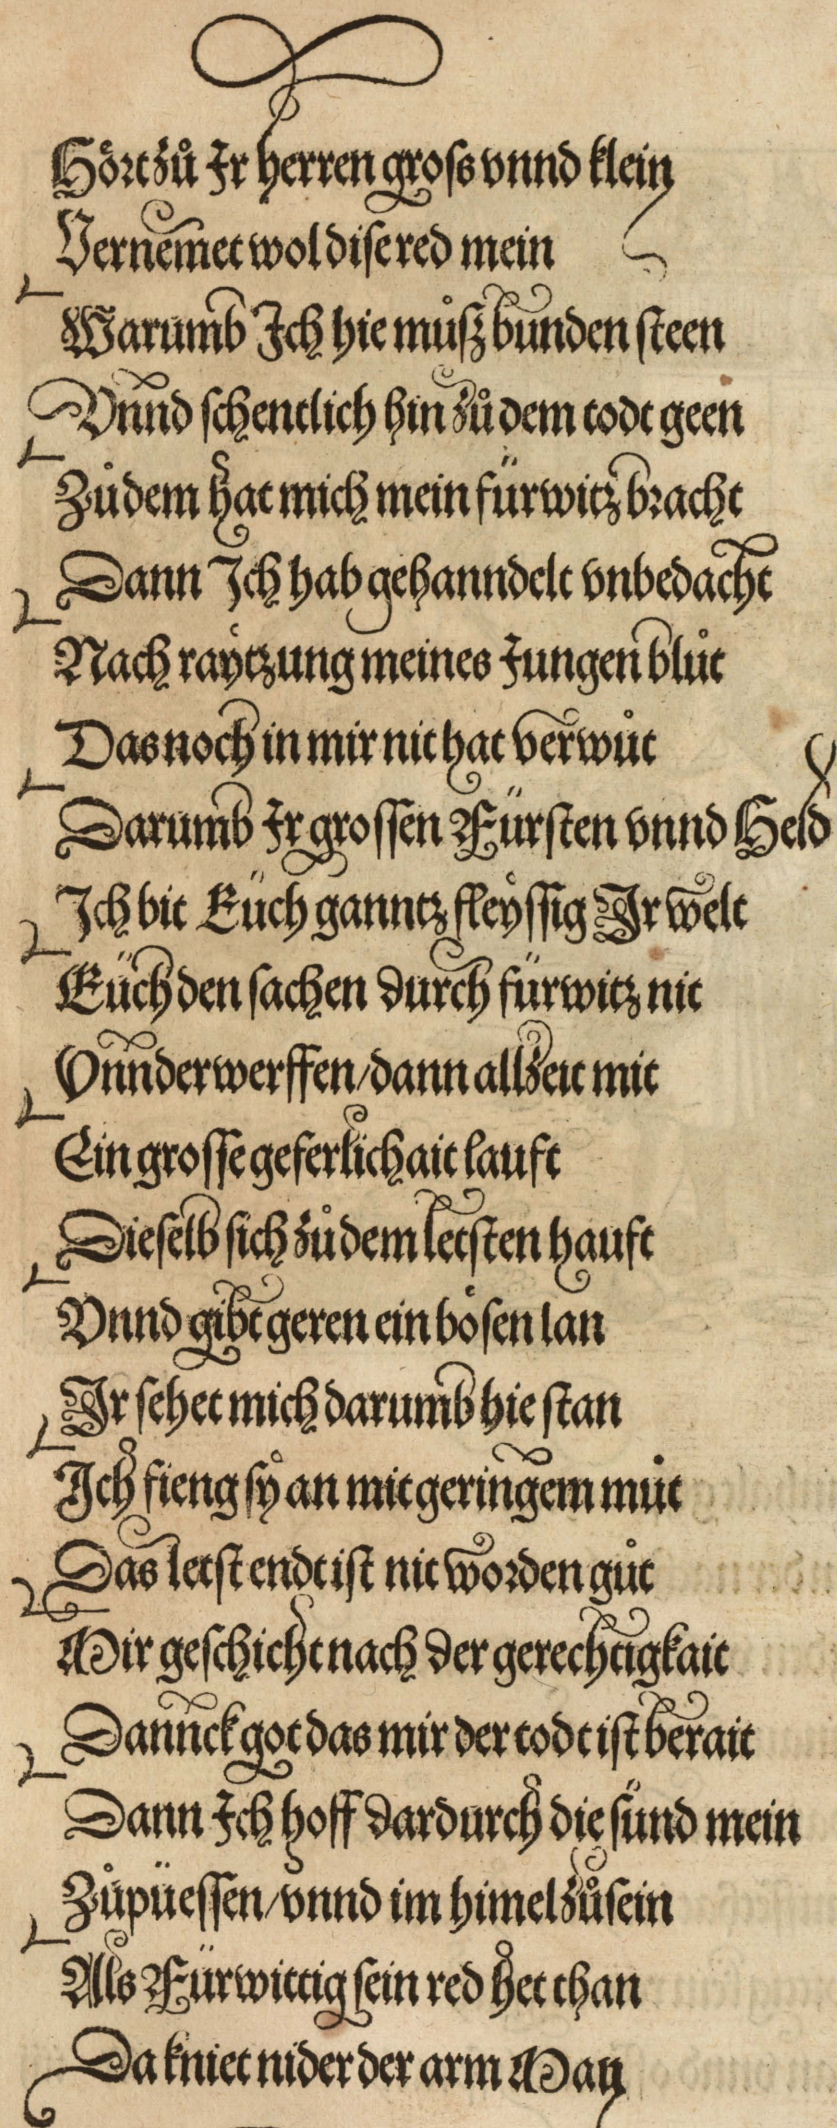 Hört zů Ir herren gross vnnd klein
Vernemet wol dise red mein
Warumb Ich hie můſz bunden steen
Vnnd schentlich hin zů dem todt geen
Zů dem hat mich mein fürwitz bracht
Dann Ich hab gehanndelt vnbedacht
Nach raÿtzung meines Jungen blůt
Das noch in mir nit hat verwůt
Darumb Ir grossen Fürsten vnnd Held
Ich bit Eüch ganntz fleÿssig Ir welt
Eüch den sachen durch fürwitz nit
Vnnderwerffen/dann allzeit mit
Ein grosse geferlichait lauft
Dieselb sich zů dem letsten hauft
Vnnd gibt geren ein bösen lan
Ir sehet mich darumb hie stan
Ich fieng sÿ an mit geringem můt
Das letst endt ist nit worden gůt
Mir geschicht nach der gerechtigkait
Dannck got das mir der todt ist berait
Dann Ich hoff dardurch die sünd mein
Zůpüessen/vnnd im himel zů sein
Als Fürwittig sein red het than
Da kniet nider der arm Man